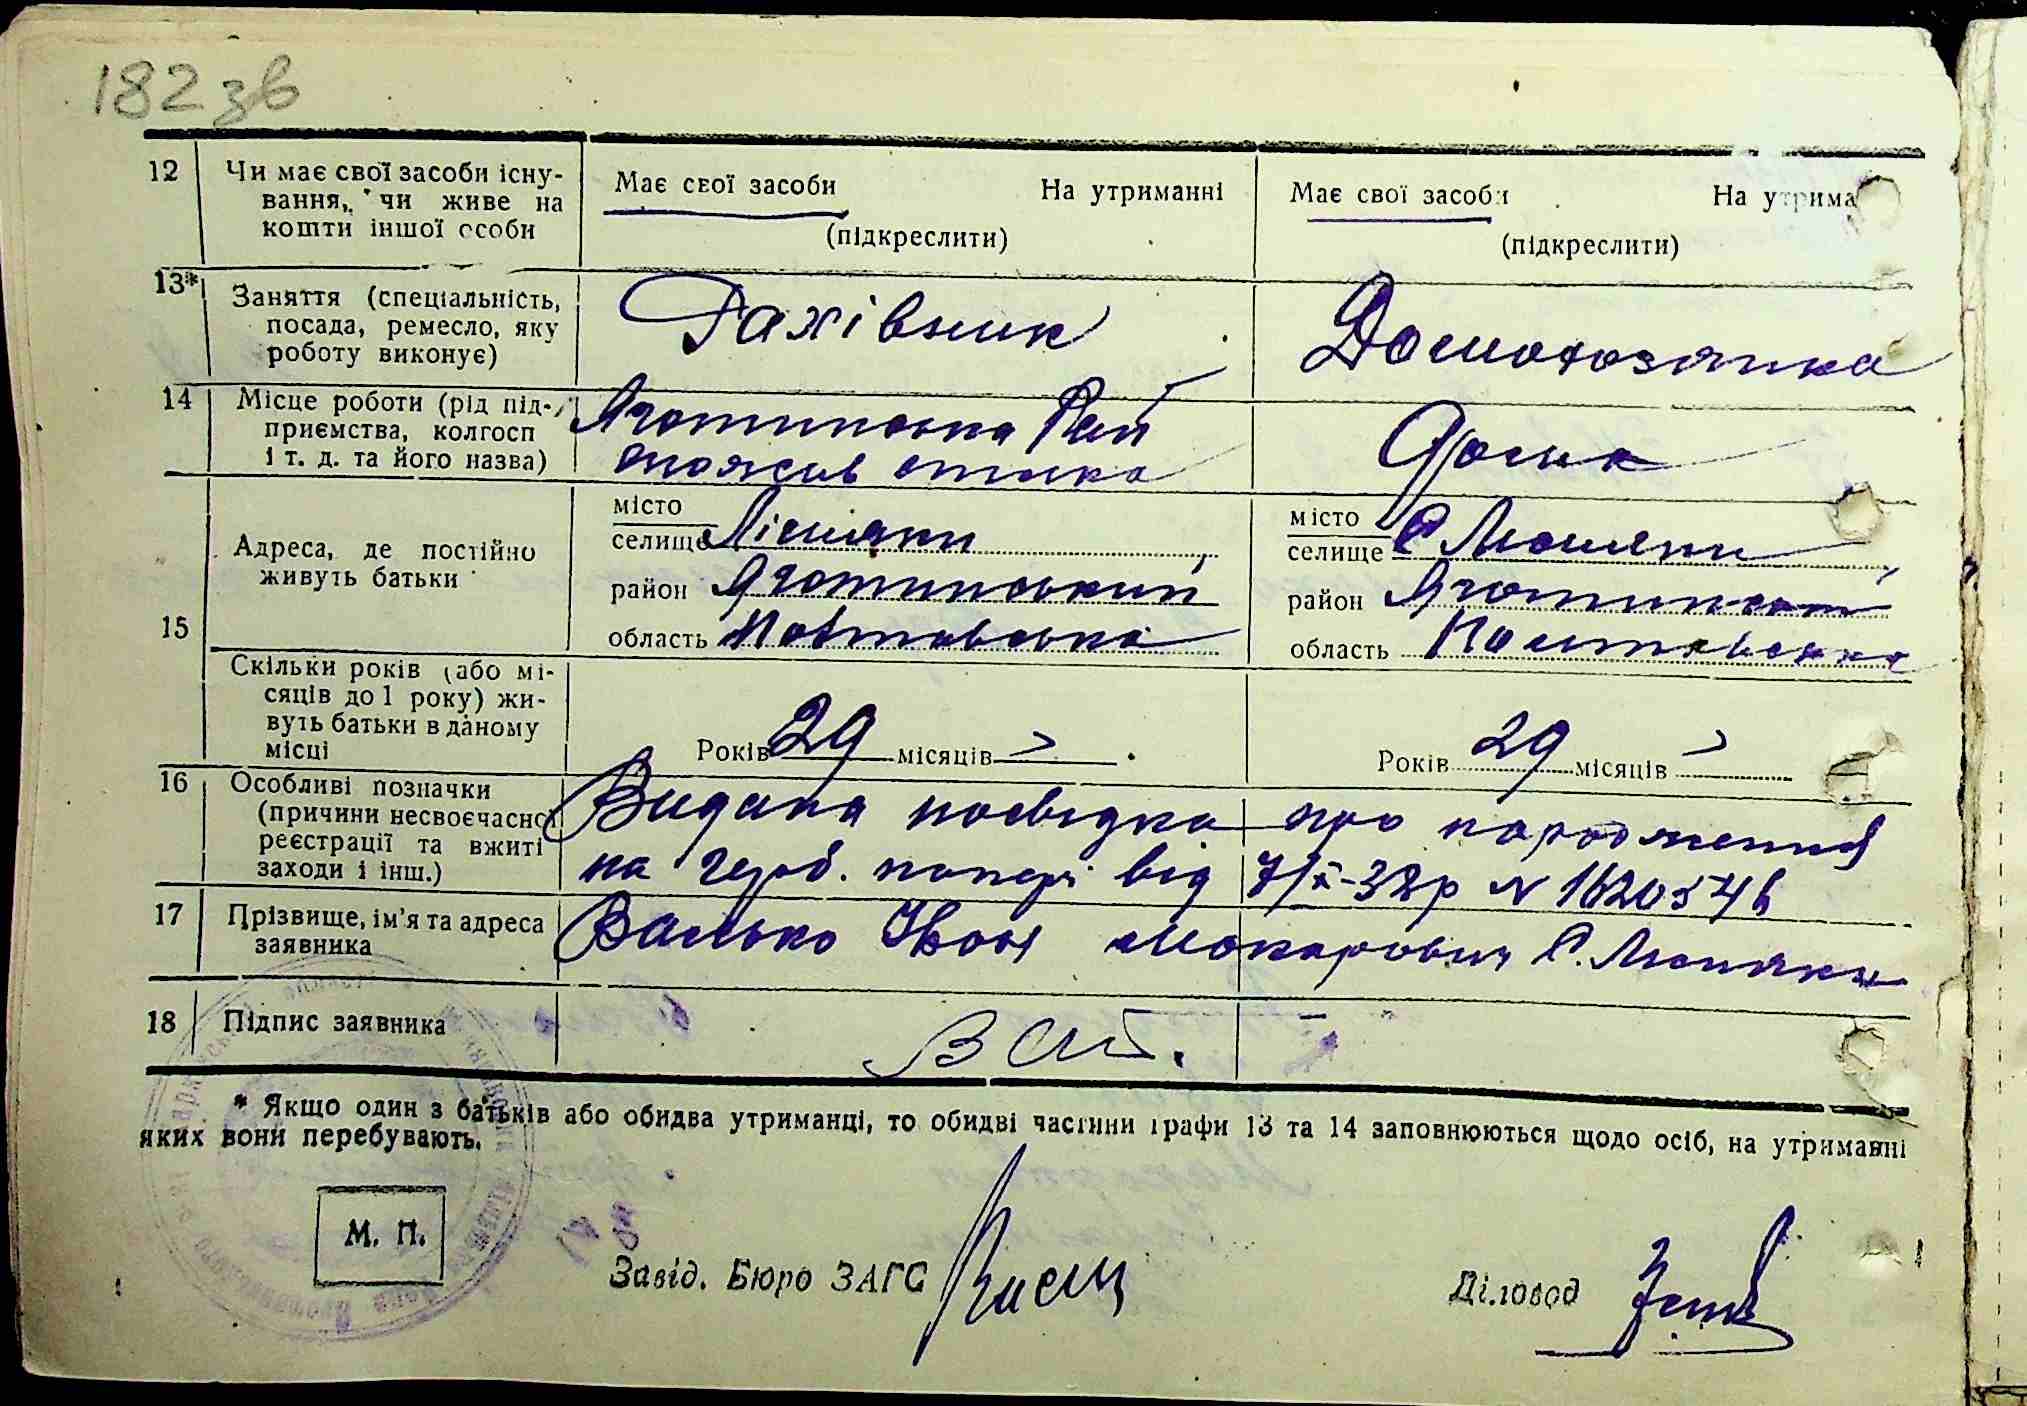 182 зв
12 Чи має свої засоби існу-
вання, чи живе на
кошти іншої особи
Має свої засоби На утриманні
(підкреслити)
Має свої засоби На утрима
(підкреслити)
13* Заняття (спеціальність,
посада, ремесло, яку
роботу виконує)
Рахівник
Домохозяйка
14 Місце роботи (рід під-
приємства, колгосп
і т. д. та його назва)
Яготинська Рай
спожив спілка
15 Адреса, де постійно
живуть батьки
місто
селище Лісняки
район Яготинський
область Полтавська
місто
селище С Лісняки
район Яготинський
область Полтавська
Скільки років (або мі-
сяців до 1 року) жи-
вуть батьки в даному
місці
Років 29 місяців
Років 29 місяців
16 Особливі позначки
(причини несвоєчасної
реєстрації та вжиті
заходи і інш.)
Видана посвідка про народження
на герб. папері від 7/X-38р N
17 Прізвище, ім'я та адреса
заявника
Валько Іван Макарович С. Лісняки
18 Підпис заявника
* Якщо один з батьків або обидва утриманці, то обидві частини графи 13 та 14 заповнюються щодо осіб, на утриманні
яких вони перебувають.
М. П.
Завід. Бюро ЗАГС
Діловод